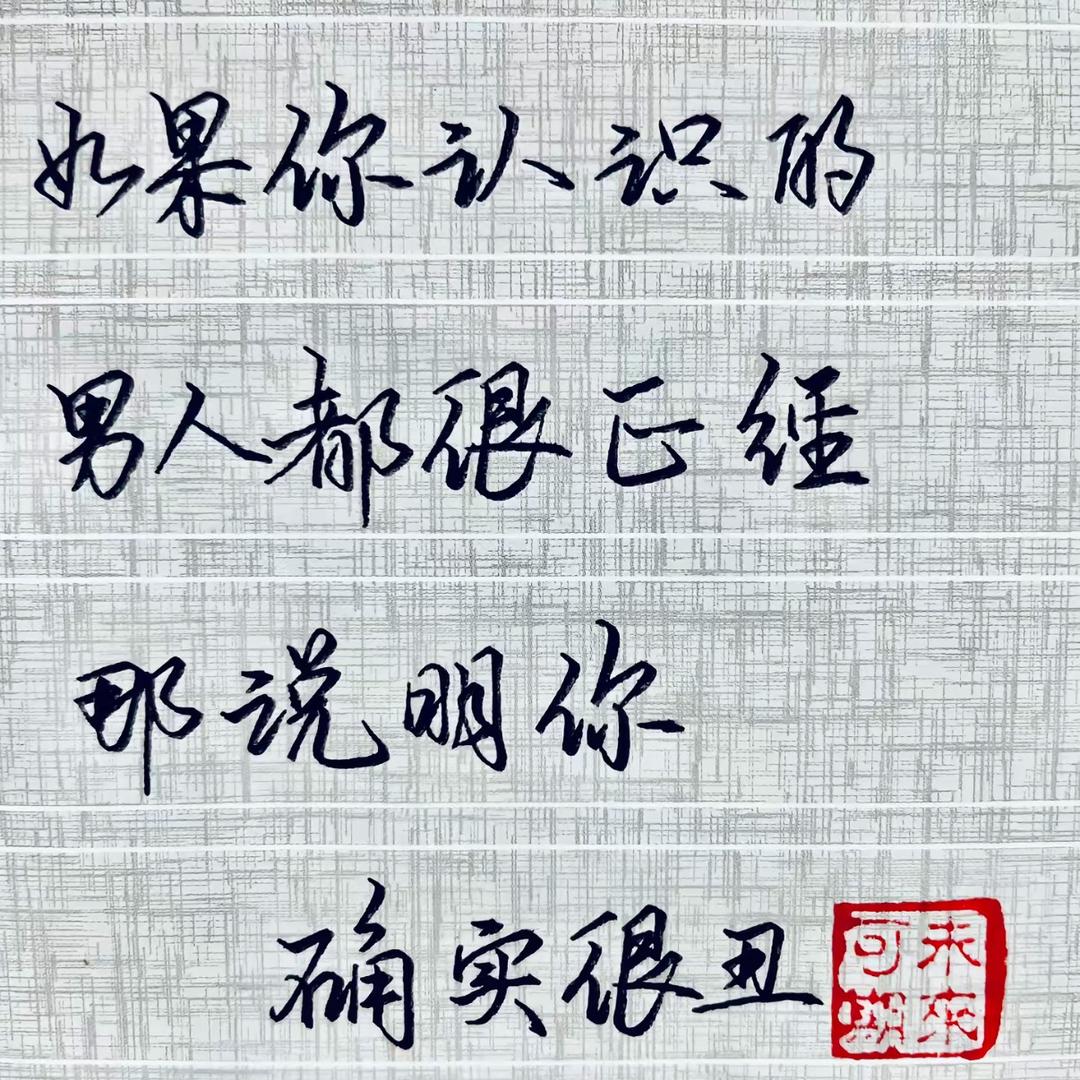 如果你认识的
男人都很正经
那说明你
确实很丑
未来可期